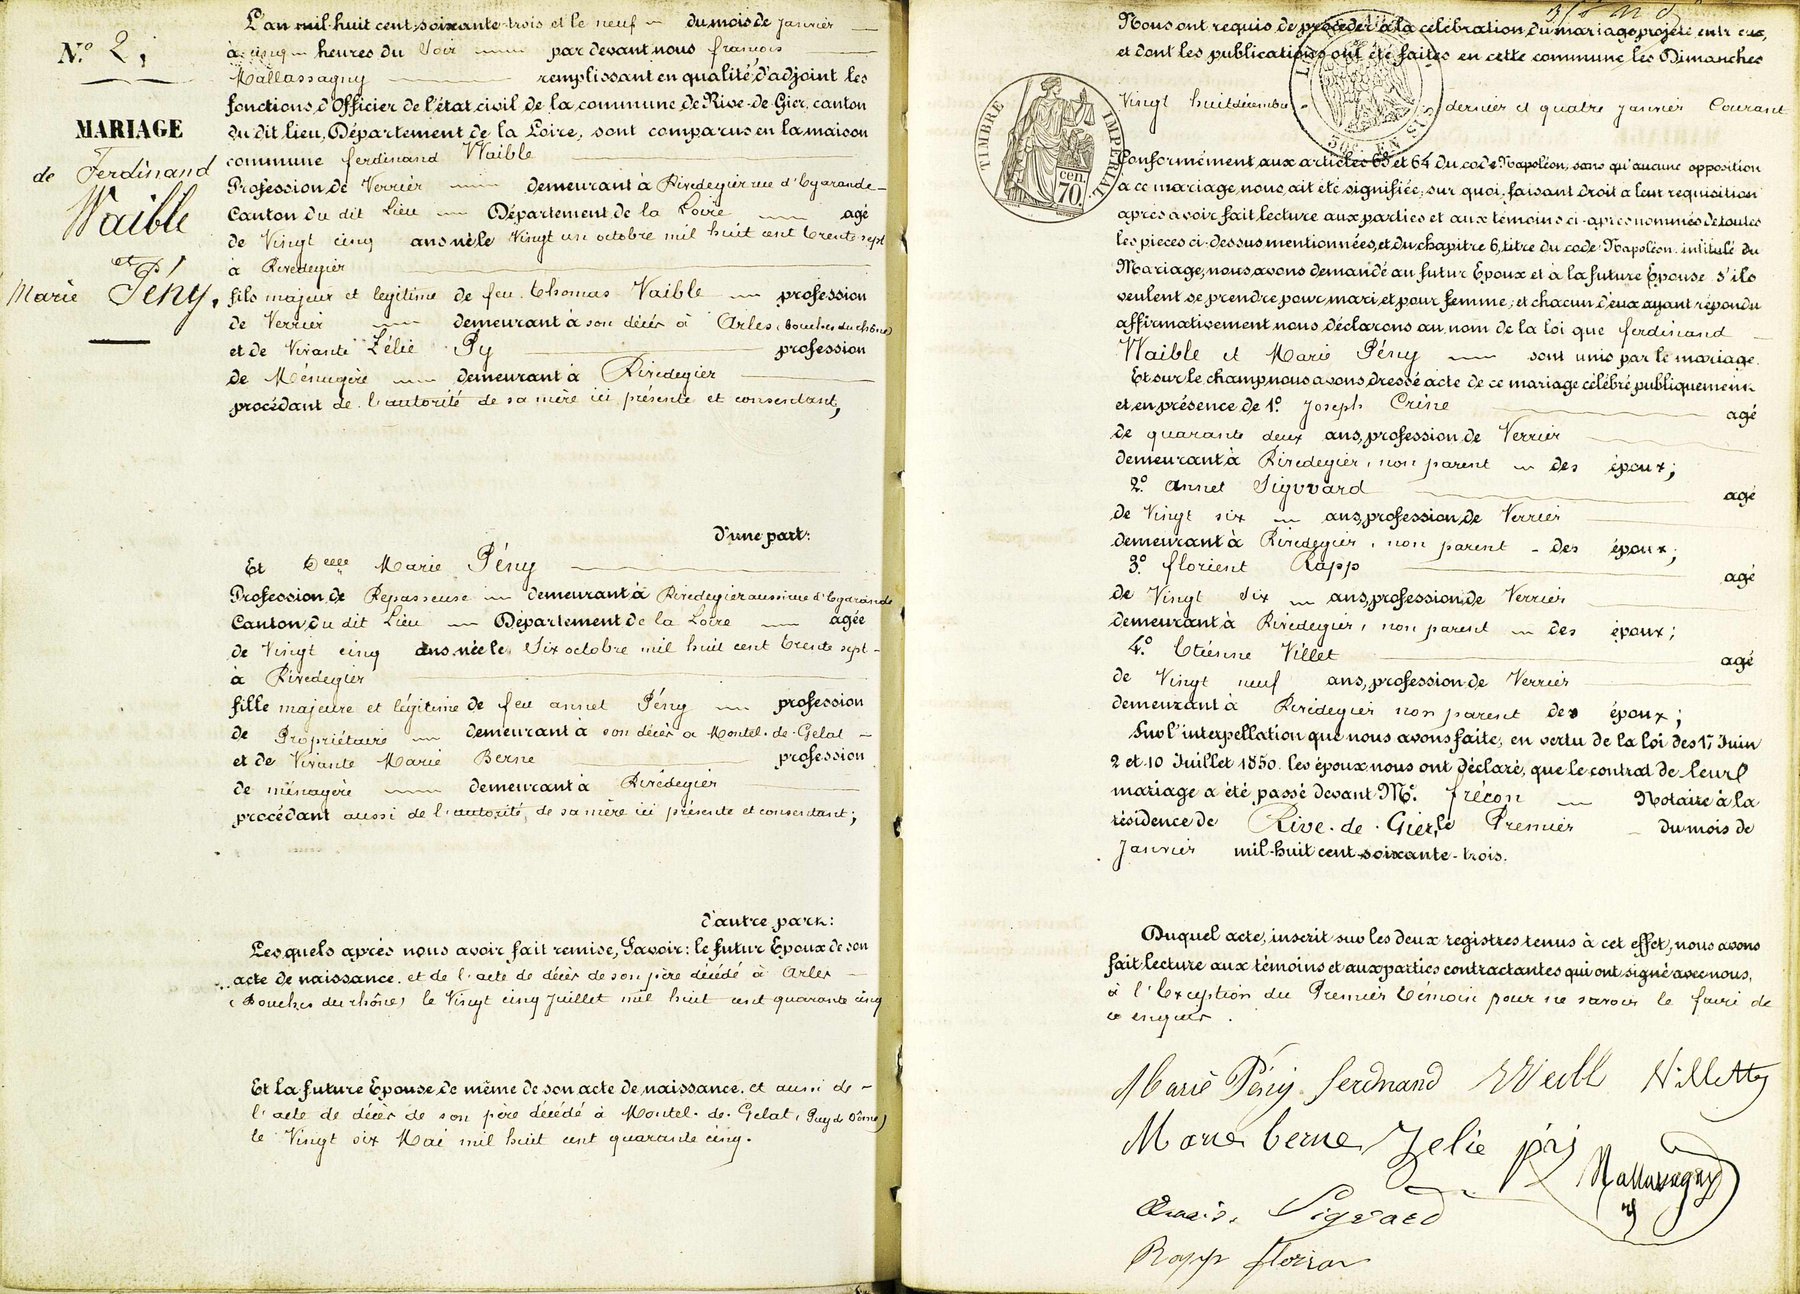 N.º 2,
MARIAGE
de Ferdinand
Waible
et
Marie Pény,
L'an mil-huit cent-soixante-trois et le neuf du mois de Janvier
à cinq heures du Soir par devant nous françois
Mallassagny remplissant en qualité d'adjoint les
fonctions d'Officier de l'état civil de la commune de Rive-de-Gier, canton
du dit lieu, Département de la Loire, sont comparus en la maison
commune ferdinand Waible
Profession de Verrier demeurant à Rivedegier rue d'Egarande
Canton du dit Lieu Département de la Loire agé
de Vingt cinq ans né le Vingt un octobre mil huit cent trente sept
à Rivedegier
fils majeur et legitime de feu Thomas Waible profession
de Verrier demeurant à son décès à Arles (bouches du rhône)
et de Vivante Zélie Py profession
de Ménagère demeurant à Rivedegier
procédant de l'autorité de sa mère ici présente et consentant,
d'une part:
Et Delle Marie Pény
Profession de Repasseuse demeurant à Rivedegier aussi rue d'Egarande
Canton du dit Lieu Département de la Loire agée
de Vingt cinq ans née le Six octobre mil huit cent trente sept
à Rivedegier
fille majeure et légitime de feu annet Pény profession
de Propriétaire demeurant à son décès à Montel-de-Gelat
et de Vivante Marie Berne profession
de ménagère demeurant à Rivedegier
procédant aussi de l'autorité de sa mère ici présente et consentant;
d'autre part:
Lesquels après nous avoir fait remise, Savoir: le futur Epoux de son
acte de naissance. et de l'acte de décès de son père décédé à Arles
(Bouches du rhône) le Vingt cinq Juillet mil huit cent quarante cinq
Et la future Epouse de même de son acte de naissance. et aussi de
l'acte de décès de son père décédé à Montel-de-Gelat (Puy de Dôme)
le Vingt six Mai mil huit cent quarante cinq.
Nous ont requis de procéder à la célébration du mariage projeté entr eux,
et dont les publications ont été faites en cette commune les Dimanches
Vingt huit décembre dernier et quatre Janvier Courant
TIMBRE IMPÉRIAL
cen.
70.
Conformément aux articles 63 et 64 du code Napoléon, sans qu'aucune opposition
a ce mariage nous ait été signifiée; sur quoi, faisant droit a leur requisition
apres avoir fait lecture aux parties et aux témoins ci-apres nommés de toutes
les pieces ci-dessus mentionnées, et du chapitre 6, titre du code Napoléon intitulé du
Mariage, nous avons demandé au futur Epoux et à la future Epouse s'ils
veulent se prendre pour mari et pour femme; et chacun d'eux ayant répondu
affirmativement nous déclarons au nom de la loi que ferdinand
Waible et Marie Pény sont unis par le mariage.
Et sur le champ nous avons dressé acte de ce mariage célébré publiquement
et en présence de 1º. Joseph Crine agé
de quarante deux ans, profession de Verrier
demeurant à Rivedegier, non parent des époux;
2º. annet Sigvvard agé
de Vingt six ans, profession de Verrier
demeurant à Rivedegier, non parent des époux;
3º. florient Rapp agé
de Vingt Six ans, profession de Verrier
demeurant à Rivedegier, non parent des époux;
4º. Etiénne Villet agé
de Vingt neuf ans, profession de Verrier
demeurant à Rivedegier non parent des époux;
Sur l'interpellation que nous avons faite, en vertu de la loi des 17 Juin
2 et 10 Juillet 1850. les époux nous ont déclaré, que le contrat de leur
mariage a été passé devant Me. frécon Notaire à la
résidence de Rive-de-Gier, le Premier du mois de
Janvier mil-huit cent-soixante-trois.
Duquel acte, inscrit sur les deux registres tenus à cet effet, nous avons
fait lecture aux témoins et aux parties contractantes qui ont signé avec nous,
à l'Exception du Premier témoin pour ne savoir le faire de
ce enquis.
Marie Pény ferdinand Weibl Villette
Marie berne Zelie pij
Mallassagny
Sigvard
Rapp florian